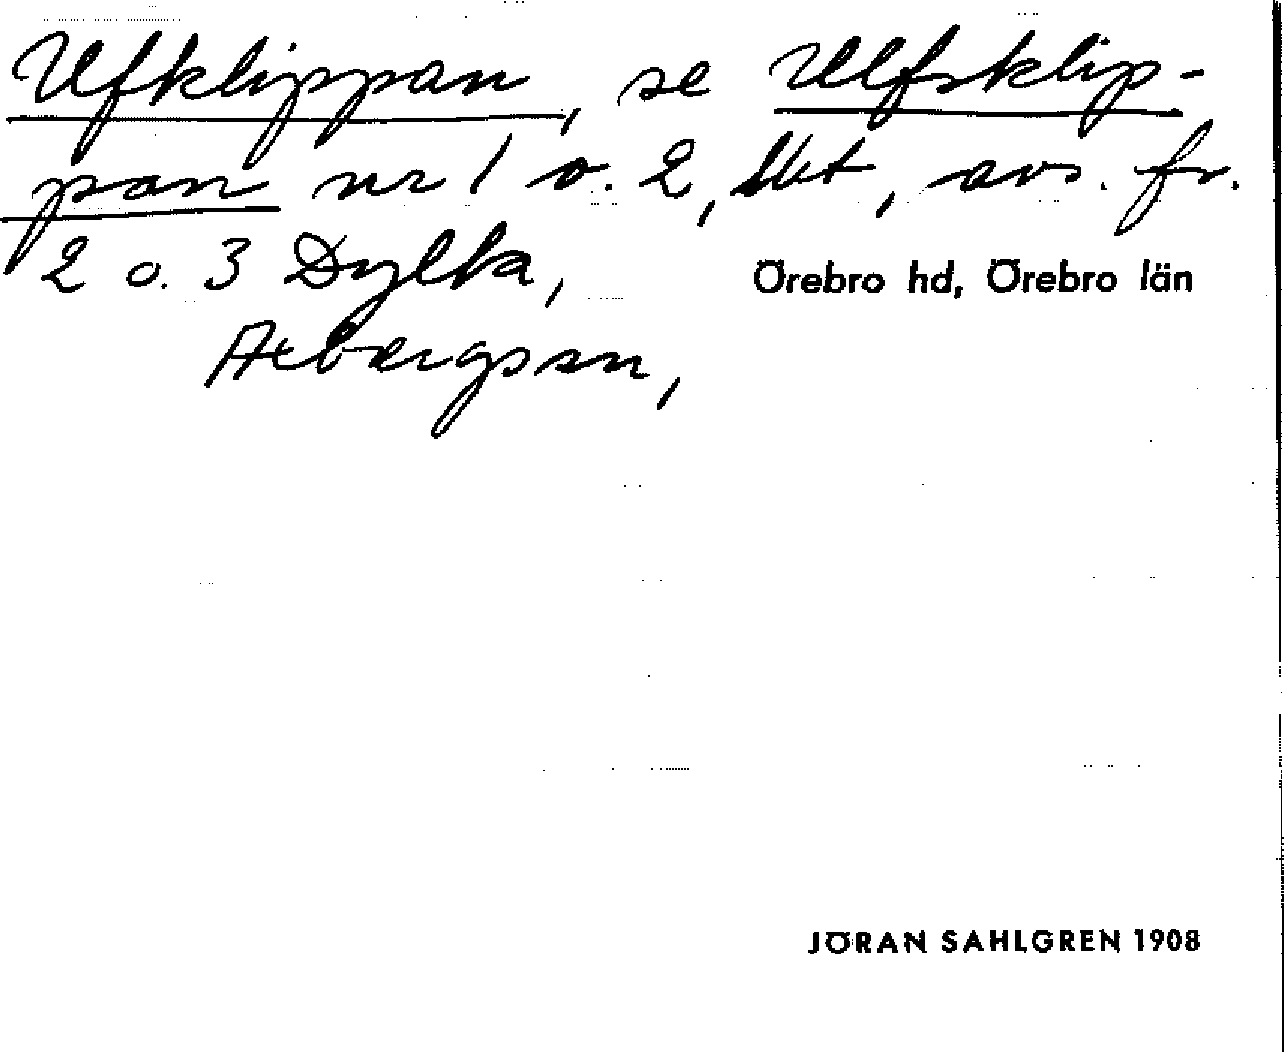 Ulfklippan, se Ulfsklip-
pan nr 1 o. 2, lht, avs. fr.
2 o. 3 Dylta,
Örebro hd, Örebro län
Axbergs sn,
JÖRAN SAHLGREN 1908